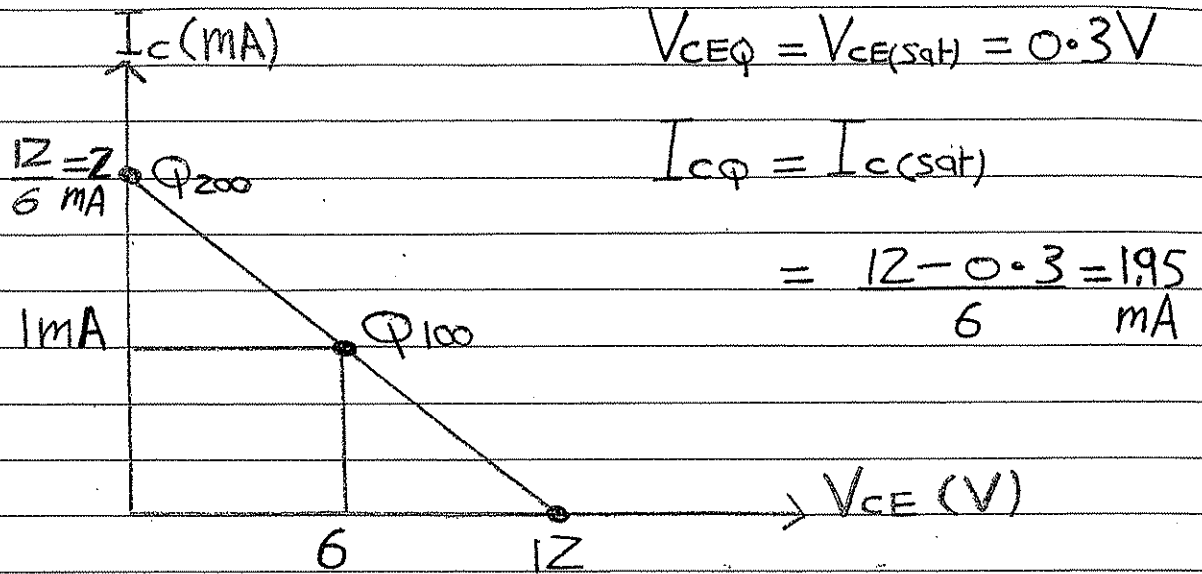 Ic (mA)
VCEQ = VCE(sat) = 0.3V
12/6 = 2 mA
Q200
ICQ = Ic(sat)
= 12-0.3/6 = 1.95 mA
1mA
Q100
VCE (V)
6
12